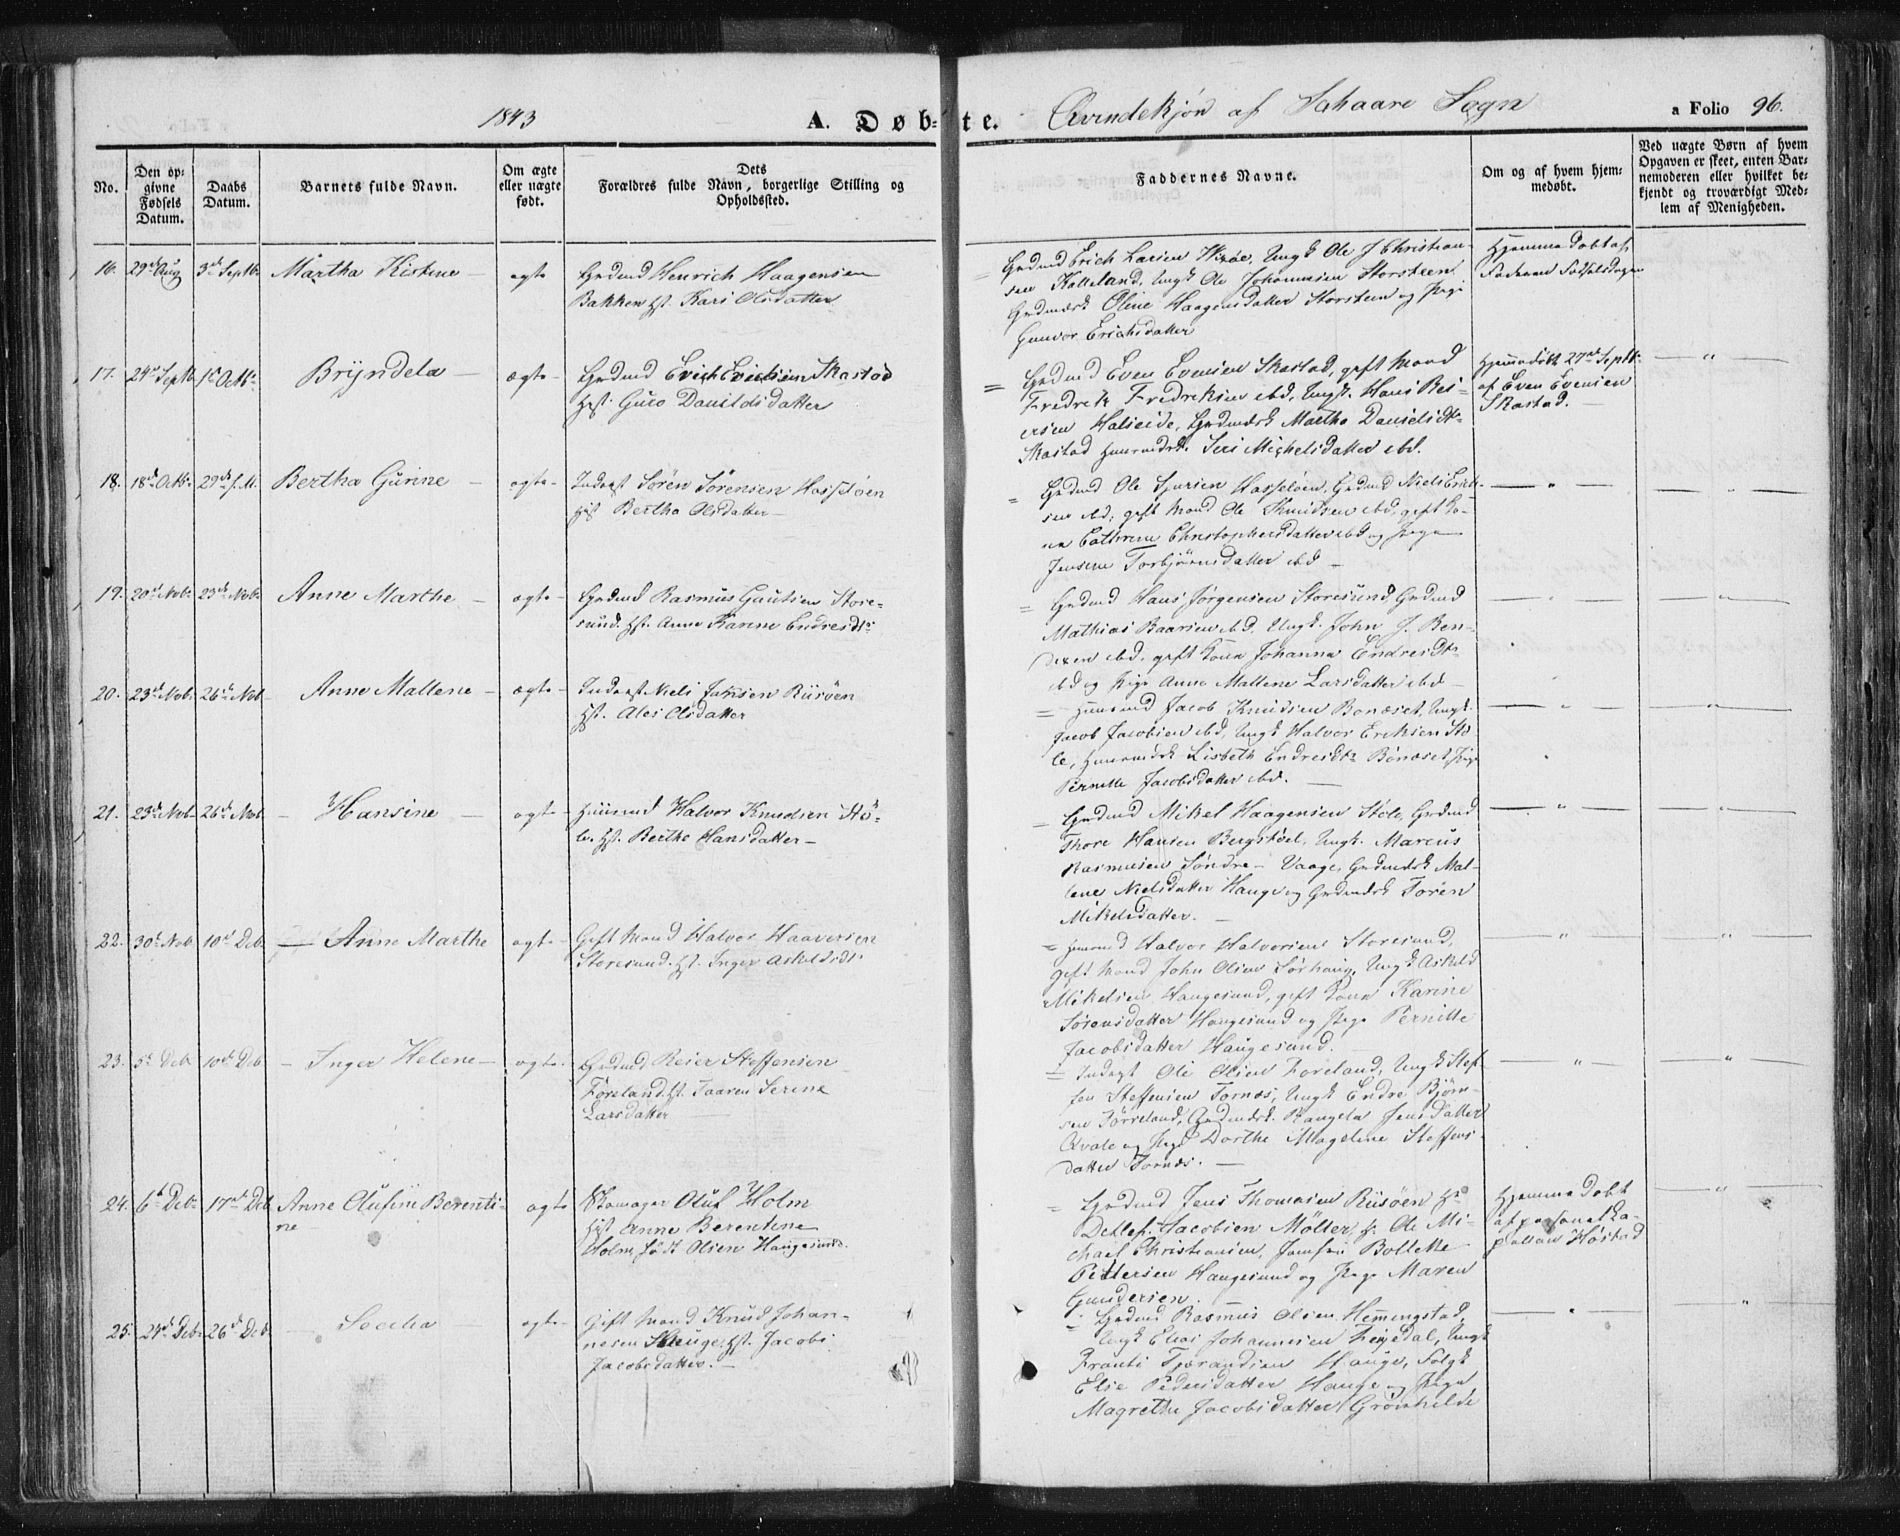 1843 A. Døbte. Qvindekjøn af Skaare Sogn a Folio 96.
No.
Den opgivne Fødsels Datum.
Daabs Datum.
Barnets fulde Navn.
Om ægte eller uægte født.
Dets Forældres fulde Navn, borgerlige Stilling og Opholdssted.
Faddernes Navne.
Om og af hvem hjemmedøbt.
Ved uægte Børn af hvem Opgaven er skeet, enten Barnemoderen eller hvilket bekjendt og troværdigt Medlem af Menigheden.
16. 29de Aug 3de Septbr Martha Kistine — ægte
Grdmd Henrich Haagensen
Bakken Hst. Kari Olsdatter
= Grdmd Erich Larsen Ungk Ole J Christian-
sen Kolleland, Ungk Ole Johannesen Storsteen
Grdmdsk Oline Haagensdatter Storsteen og Pige
Gunvor Erichsdatter
Hjemmedøbt af
Faderen Fødselsdagen
17. 24de Septb 1ste Octbr Bryndela — ægte
Grdmd Erich Erichsen Skastad
Hst. Guro Danildsdatter
= Grdmd Even Evensen Skastad, gift Mand
Fredrek Fredreksen ibd, Ungk. Hans Rei-
ersen Halseide, Grdmdsk Martha Danielsdtr
Skastad Huusmdsk. Siri Michelsdatter ibd.
Hjemmedøbt 27de Septbr
af Even Evensen
Skastad.
18. 18de Octbr 29de s. M. Bertha Gurine — ægte
Inderst Søren Sørensen Hasseløen
Hst Bertha Olsdatter
= Grdmd Ole Sjursen Hasseløen, Grdmd Niels Erich-
sen ibd, gift Mand Ole Knudsen ibd, gift Ko-
ne Cathrine Christophersdatter ibd og Pige
Jensine Torbjørnsdatter ibd —
19. 20de Nobr 23de Nobr Anne Marthe — ægte
Grdmd Rasmus Gautsen Store-
sund. Hst. Anne Karine Endresdtr
= Grdmd Hans Jørgensen Storesund Grdmd
Mathias Baarsen ibd, Ungk. John J. Ben-
dixen ibd, gift Kone Johanna Endresdtr
ibd og Pige Anne Mallene Larsdatter ibd —
20. 23de Nob. 26de Nob Anne Mallene — ægte
Inderst Niels Jansen Risøen
Hst. Ales Olsdatter
= Huusmd Jacob Knudsen Bonæset, Ungk.
Jacob Jacobsen ibd, Ungk Halvor Eriksen Stø
le, Huusmdsk Lisbeth Endresdtr Bonæset, Pige
Pernille Jacobsdatter ibd. —
21. 23de Nob 26de Nob. — Hansine — ægte
Huusmd Halvor Knudsen Stø-
le. Hst. Berthe Hansdatter —
= Grdmd Mikel Haagensen Støle, Grdmd
Thore Hansen Bergstøel, Ungk. Marcus
Rasmusen Søndre-Vaage, Grdmdsk Mal-
lene Nielsdatter Hauge og Grdmdsk Toren
Mikelsdatter. —
22. 30te Nob. 10de Deb — Anne Marthe ægte
Gift Mand Halvor Haaversen
Storesund. Hst. Inger Askeldsdtr
= Huusmd Halvor Halvorsen Storesund,
gift Mand John Olsen Sørhaug, Ungk Askeld
Mikelsen Haugesund, gift Kone Karine
Sørensdatter Haugesund og Pige Pernille
Jacobsdatter Haugesund.
23. 5te Deb 10de Deb — Inger Helene — ægte
Grdmd Reier Steffensen
Føreland. Hst. Taaren Serine
Larsdatter
= Inderst Ole Olsen Føreland, Ungk Stef-
fen Steffensen Tornæs, Ungk Endre Bjørn-
sen Førreland, Grdmdsk. Rangela Jensdatter
Qvale og Pige Dorthe Magelene Steffens-
datter Tornæs. —
24. 6te Debr 17de Deb. Anne Olufine Berenti-
ne ægte
Skomager Oluf Holm
Hst Anne Berentine
Holm, født Olsen Haugesund.
= Grdmd Jens Thomasen Risøen Hr
Detlef Jacobsen Møller, Hr Ole Mi-
chael Christiansen, Jomfru Bollette
Pettersen Haugesund og Pige Maren
Gundersen.
Hjemmedøbt
af personel Ca-
pellan Høstad
25. 24de Deb. 26de Deb. — Secelia ægte
Gift Mand Knud Johan-
nesen Hauge, Hst. Jacobi
Jacobsdatter. —
= Grdmd Rasmus Olsen Hemmingstad,
Ungk Elias Johannesen Ungk
Frants Tjerandsen Hauge, Folgk
Elie Pedersdatter Hauge og Pige
Magrethe Jacobsdatter Grønhilde